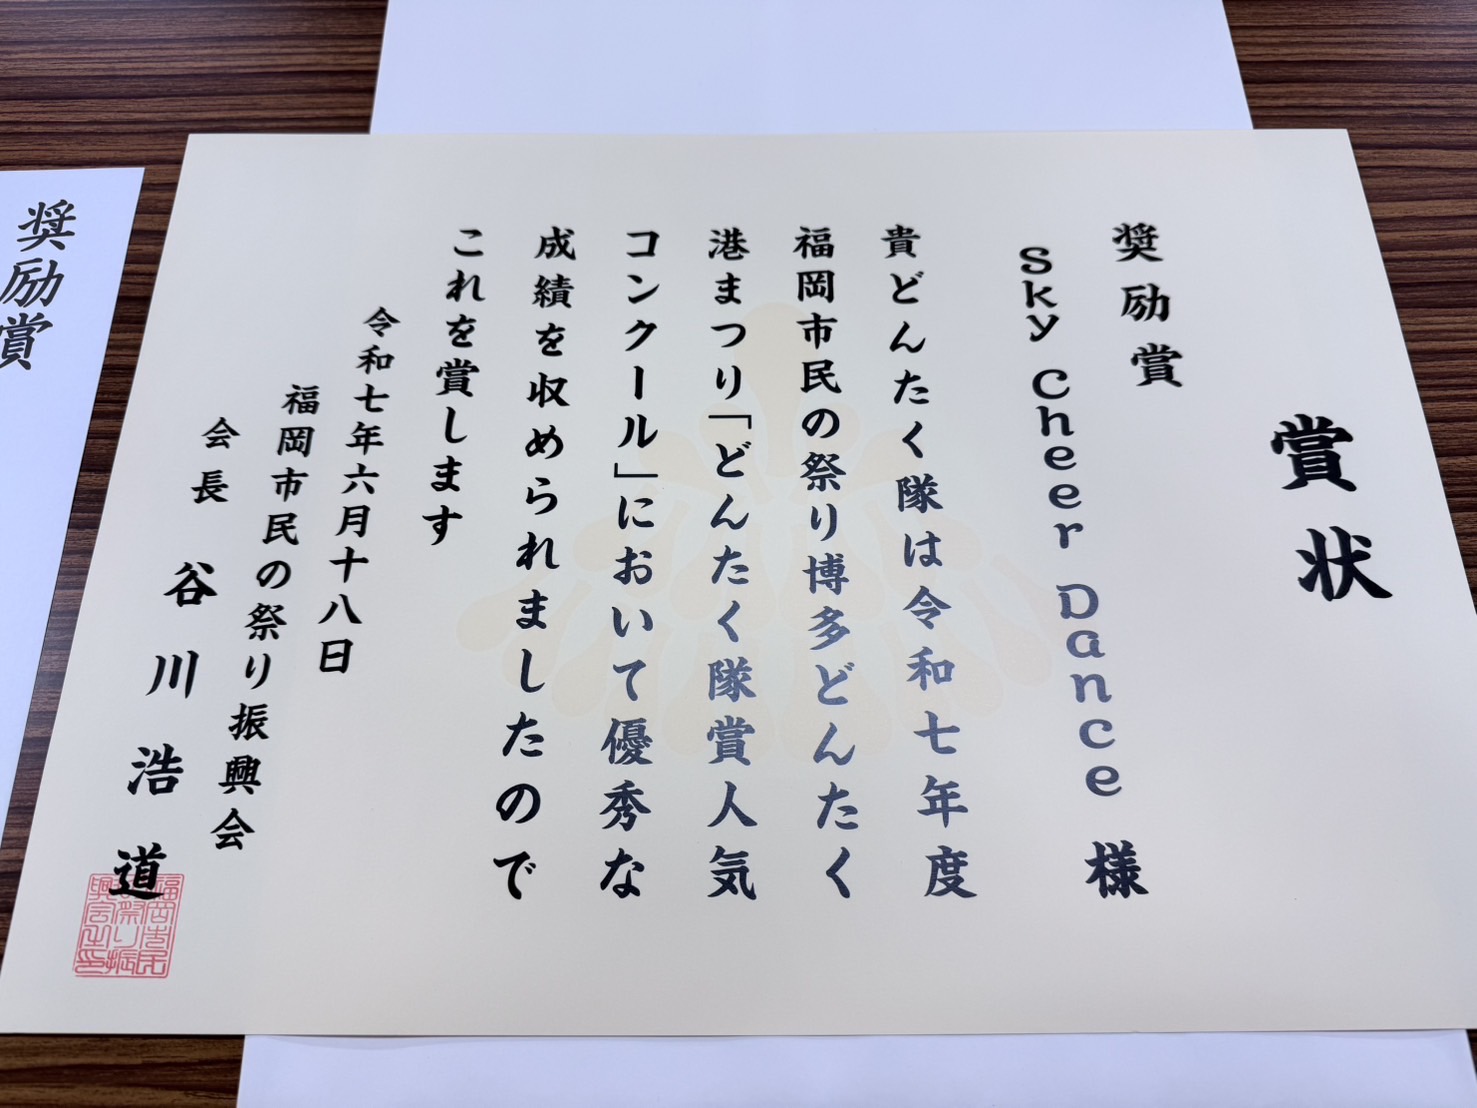 賞状
奨励賞
Sky Cheer Dance 様
貴どんたく隊は令和七年度
福岡市民の祭り博多どんたく
港まつり「どんたく隊賞人気
コンクール」において優秀な
成績を収められましたので
これを賞します
令和七年六月十八日
福岡市民の祭り振興会
会長 谷川浩道
福岡市民
の祭り振
興会之印
奨励賞